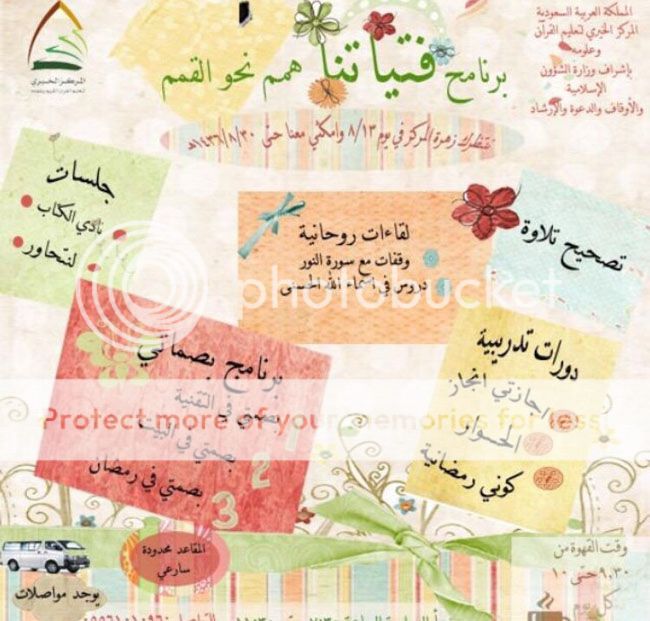 المملكة العربية السعودية
المركز الخيري لتعليم القرآن
وعلومه
بإشراف وزارة الشؤون
الإسلامية
والأوقاف والدعوة والإرشاد
المركز الخيري
برنامج فتياتنا همم نحو القمم
ننتظرك زهرة المركز في يوم ٨/١٣ وامكثي معنا حتى ١٤٣٦/٨/٣٠هـ
تصحيح تلاوة
لقاءات روحانية
وقفات مع سورة النور
دروس في أسماء الله الحسنى
جلسات
نادي الكتاب
لنتحاور
دورات تدريبية
اجازتي انجاز
الحوار
كوني رمضانية
برنامج بصماتي
بصمتي في التقنية 1
بصمتي في البيت 2
بصمتي في رمضان 3
photobucket
Protect more of your memories for less
المقاعد محدودة
سارعي
يوجد مواصلات
وقت القهوة من
٩،٣٠ حتى ١٠
كل يوم